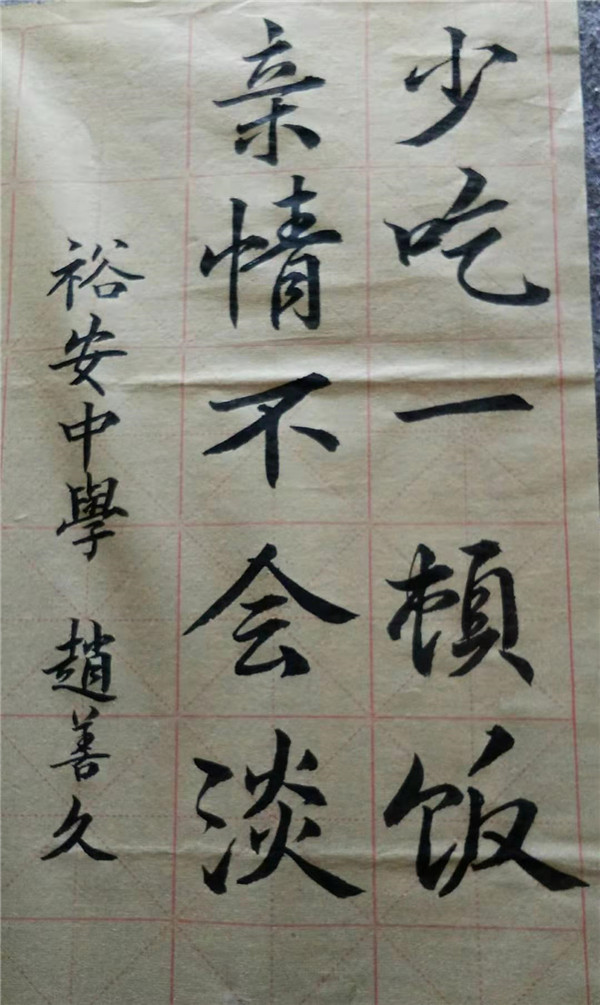 少吃一頓飯
亲情不会淡
裕安中學 趙善久